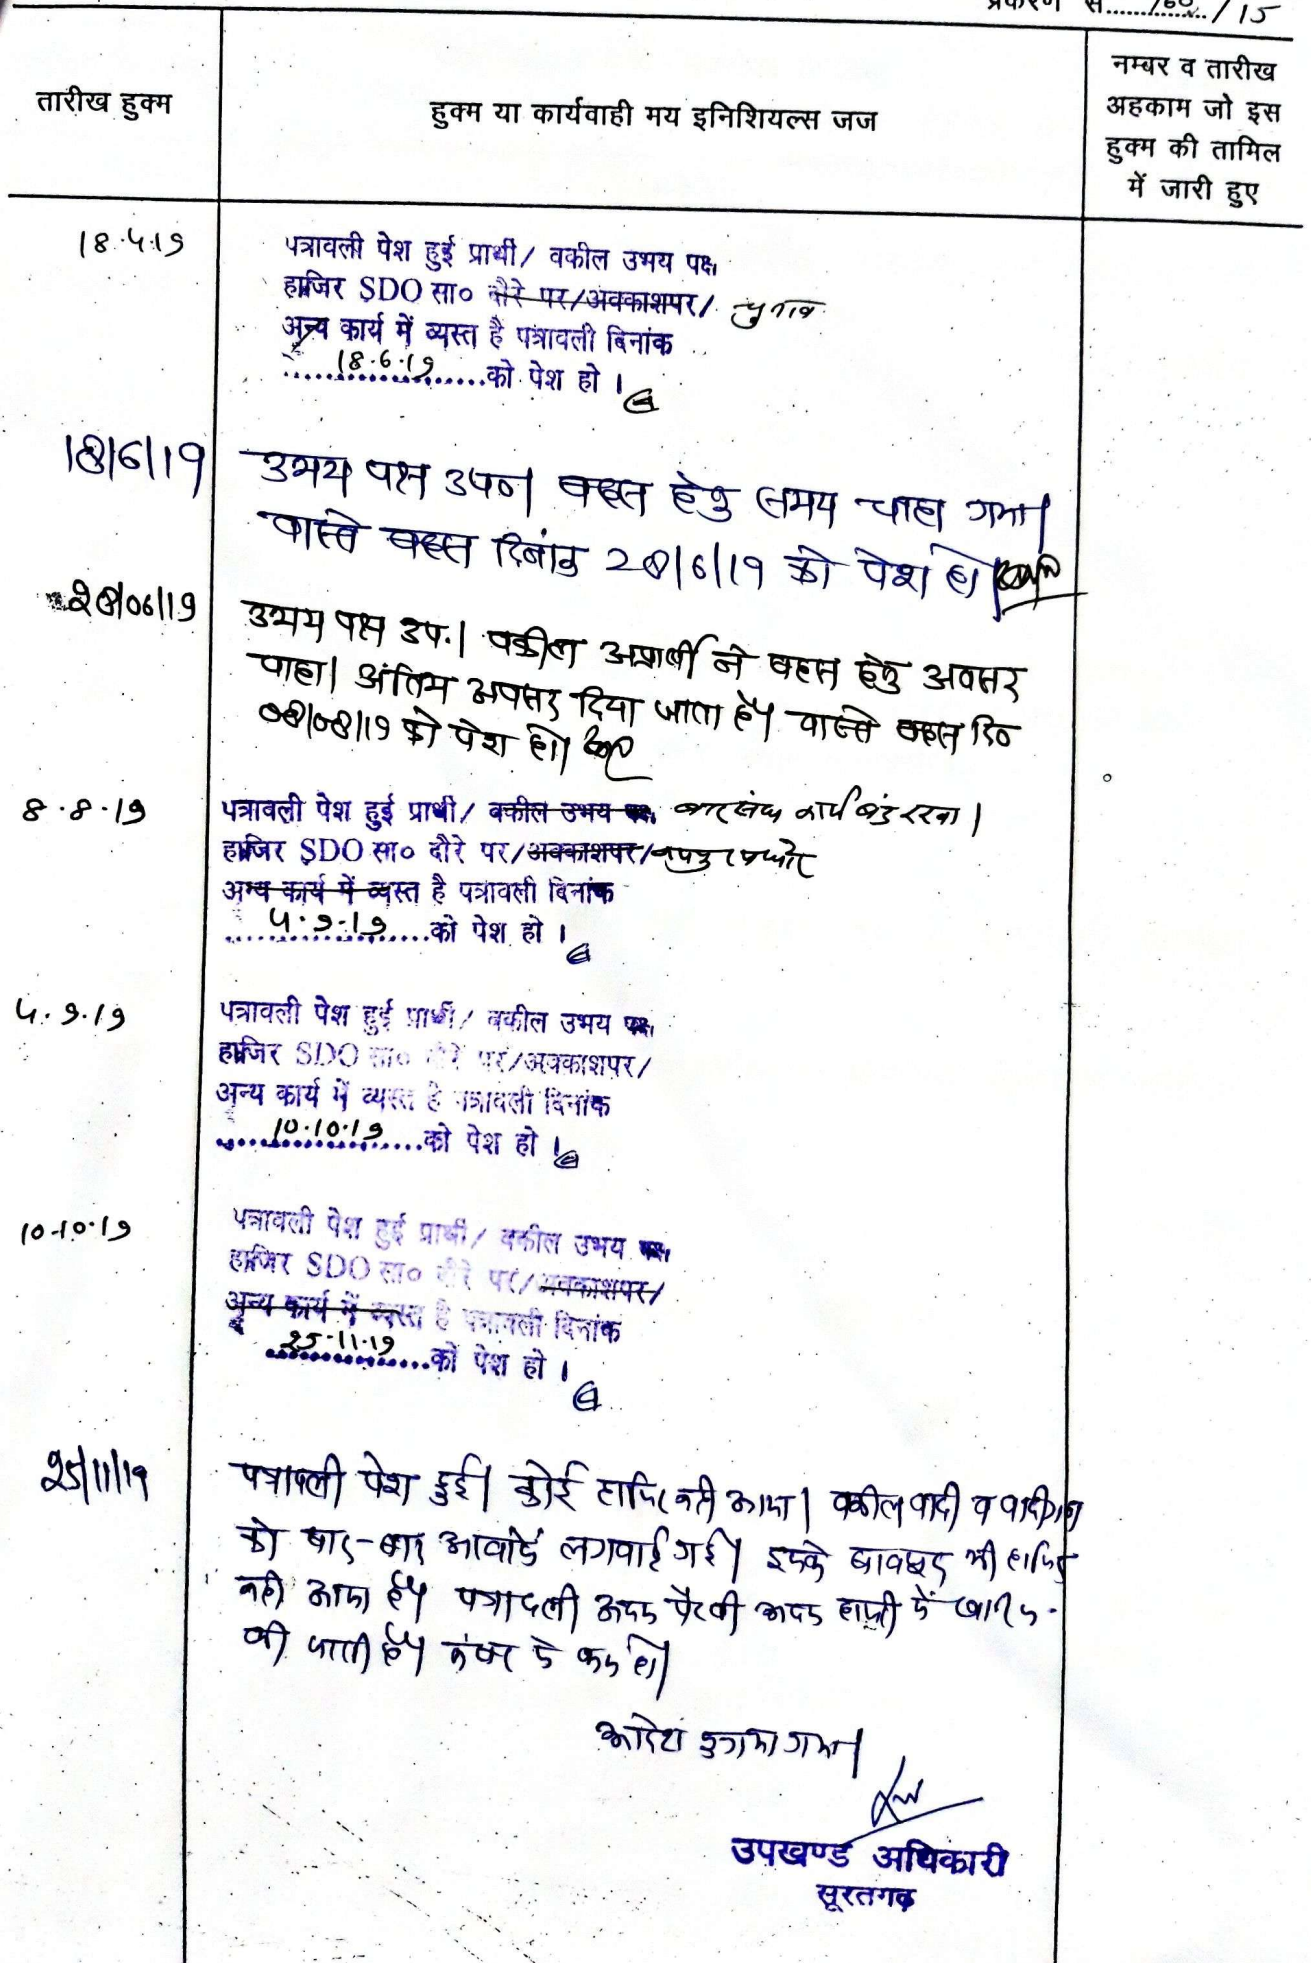 प्रकरण सं.........../15
तारीख हुक्म
हुक्म या कार्यवाही मय इनिशियल्स जज
नम्बर व तारीख
अहकाम जो इस
हुक्म की तामिल
में जारी हुए
18.4.19
पत्रावली पेश हुई प्रार्थी/ वकील उभय पक्ष
हाजिर SDO सा० दौरे पर/अवकाशपर/ चुनाव
अन्य कार्य में व्यस्त है पत्रावली दिनांक
18.6.19 को पेश हो ।
18/6/19
उभय पक्ष उप०। बहस हेतु समय चाहा गया।
वास्ते बहस दिनांक 28/6/19 को पेश हो।
28/06/19
उभय पक्ष उप.। वकील अप्रार्थी ने बहस हेतु अवसर
चाहा। अंतिम अवसर दिया जाता है। वास्ते बहस दि०
08/08/19 को पेश हो।
8.8.19
पत्रावली पेश हुई प्रार्थी/ वकील उभय पक्ष बार संघ कार्य बंद रखा।
हाजिर SDO सा० दौरे पर/अवकाशपर/
अन्य कार्य में व्यस्त है पत्रावली दिनांक
4.9.19 को पेश हो ।
4.9.19
पत्रावली पेश हुई प्रार्थी/ वकील उभय पक्ष
हाजिर SDO सा० दौरे पर/अवकाशपर/
अन्य कार्य में व्यस्त है पत्रावली दिनांक
10.10.19 को पेश हो ।
10.10.19
पत्रावली पेश हुई प्रार्थी/ वकील उभय पक्ष
हाजिर SDO सा० दौरे पर/अवकाशपर/
अन्य कार्य में व्यस्त है पत्रावली दिनांक
25.11.19 को पेश हो ।
25/11/19
पत्रावली पेश हुई। कोई हाजिर नही आया। वकील वादी व वादीगण
को बार-बार आवाजे लगवाई गई। इसके बावजूद भी हाजिर
नही आया है। पत्रावली अदम पैरवी अदम हाजरी में खारिज
की जाती है। नंबर से कम हो।
आदेश सुनाया गया।
उपखण्ड अधिकारी
सूरतगढ़